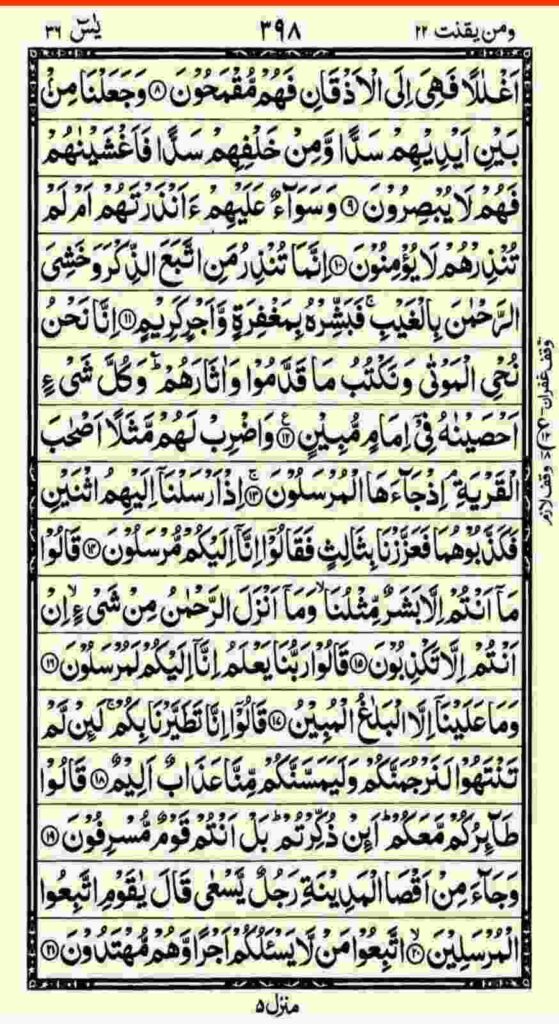 ومن يقنت ٢٢
٣٩٨
يٰسٓ ٣٦
اَغْلٰلًا فَهِىَ اِلَى الْاَذْقَانِ فَهُمْ مُّقْمَحُوْنَ ۝٨ وَجَعَلْنَا مِنْۢ
بَيْنِ اَيْدِيْهِمْ سَدًّا وَّمِنْ خَلْفِهِمْ سَدًّا فَاَغْشَيْنٰهُمْ
فَهُمْ لَا يُبْصِرُوْنَ ۝٩ وَسَوَآءٌ عَلَيْهِمْ ءَاَنْذَرْتَهُمْ اَمْ لَمْ
تُنْذِرْهُمْ لَا يُؤْمِنُوْنَ ۝١٠ اِنَّمَا تُنْذِرُ مَنِ اتَّبَعَ الذِّكْرَ وَخَشِىَ
الرَّحْمٰنَ بِالْغَيْبِ ۚ فَبَشِّرْهُ بِمَغْفِرَةٍ وَّاَجْرٍ كَرِيْمٍ ۝١١ اِنَّا نَحْنُ
نُحْىِ الْمَوْتٰى وَنَكْتُبُ مَا قَدَّمُوْا وَاٰثَارَهُمْ ؕ وَكُلَّ شَىْءٍ
اَحْصَيْنٰهُ فِىْۤ اِمَامٍ مُّبِيْنٍ ۝١٢ ع وَاضْرِبْ لَهُمْ مَّثَلًا اَصْحٰبَ
الْقَرْيَةِ ۘ اِذْ جَآءَهَا الْمُرْسَلُوْنَ ۝١٣ ۚ اِذْ اَرْسَلْنَاۤ اِلَيْهِمُ اثْنَيْنِ
فَكَذَّبُوْهُمَا فَعَزَّزْنَا بِثَالِثٍ فَقَالُوْۤا اِنَّاۤ اِلَيْكُمْ مُّرْسَلُوْنَ ۝١٤ قَالُوْا
مَاۤ اَنْتُمْ اِلَّا بَشَرٌ مِّثْلُنَا ۙ وَمَاۤ اَنْزَلَ الرَّحْمٰنُ مِنْ شَىْءٍ ۙ اِنْ
اَنْتُمْ اِلَّا تَكْذِبُوْنَ ۝١٥ قَالُوْا رَبُّنَا يَعْلَمُ اِنَّاۤ اِلَيْكُمْ لَمُرْسَلُوْنَ ۝١٦
وَمَا عَلَيْنَاۤ اِلَّا الْبَلٰغُ الْمُبِيْنُ ۝١٧ قَالُوْۤا اِنَّا تَطَيَّرْنَا بِكُمْ ۚ لَئِنْ لَّمْ
تَنْتَهُوْا لَنَرْجُمَنَّكُمْ وَلَيَمَسَّنَّكُمْ مِّنَّا عَذَابٌ اَلِيْمٌ ۝١٨ قَالُوْا
طَآئِرُكُمْ مَّعَكُمْ ؕ اَئِنْ ذُكِّرْتُمْ ؕ بَلْ اَنْتُمْ قَوْمٌ مُّسْرِفُوْنَ ۝١٩
وَجَآءَ مِنْ اَقْصَا الْمَدِيْنَةِ رَجُلٌ يَّسْعٰى قَالَ يٰقَوْمِ اتَّبِعُوا
الْمُرْسَلِيْنَ ۝٢٠ ۙ اتَّبِعُوْا مَنْ لَّا يَسْئَلُكُمْ اَجْرًا وَّهُمْ مُّهْتَدُوْنَ ۝٢١
وقف غفران
وقف لازم
منزل ٥